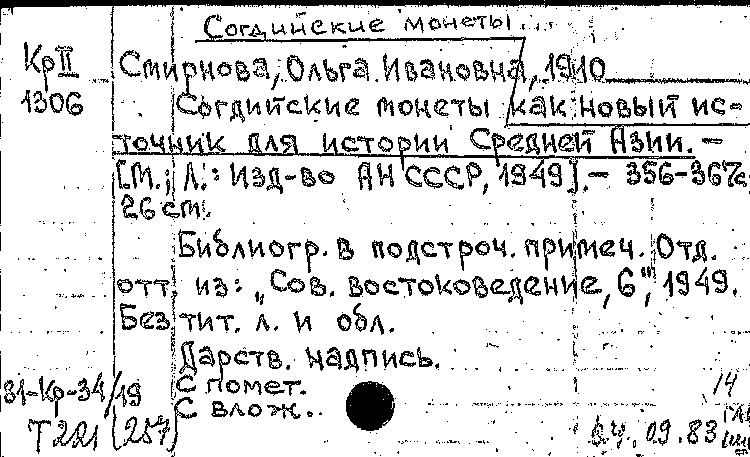 Согдийские монеты...
КрII Смирнова, Ольга Ивановна, 1910
1306 Согдийские монеты как новый ис-
точник для истории Средней Азии. –
[М.; Л.: Изд-во АН СССР, 1949]. – 356-367с.
26 cm.
Библиогр. в подстроч. примеч. Отд.
отт. из: „Сов. востоковедение, 6", 1949.
Без тит. л. и обл.
Дарств. надпись.
81-Кр-34/19 С помет. 14
С влож..
Т221 (257) 09.83